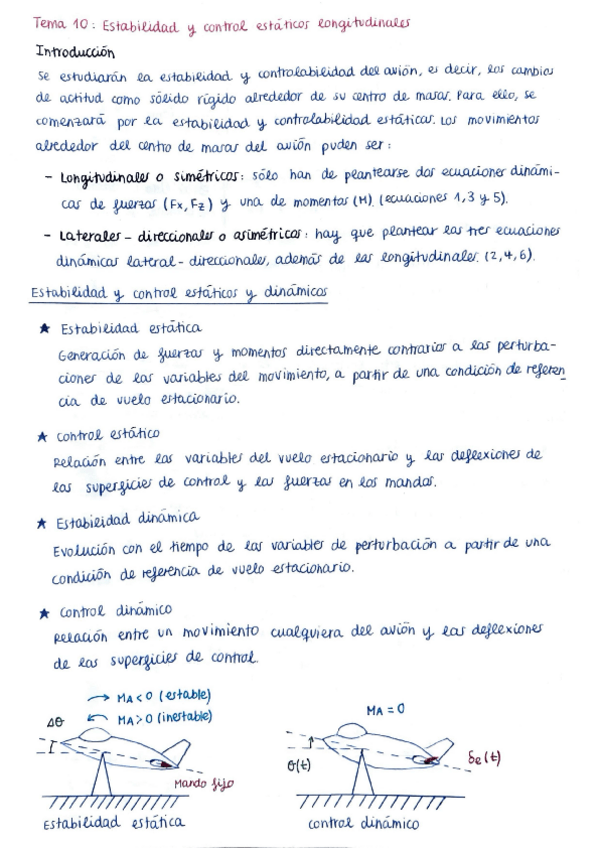 Tema 10: Estabilidad y control estáticos longitudinales
Introducción
Se estudiarán la estabilidad y controlabilidad del avión, es decir, los cambios
de actitud como sólido rígido alrededor de su centro de masas. Para ello, se
comenzará por la estabilidad y controlabilidad estáticas. Los movimientos
alrededor del centro de masas del avión puden ser:
- Longitudinales o simétricos: sólo han de plantearse dos ecuaciones dinámi-
cas de fuerzas (Fx, Fz) y una de momentos (M). (ecuaciones 1,3 y 5).
- Laterales - direccionales o asimétricos: hay que plantear las tres ecuaciones
dinámicas lateral - direccionales, además de las longitudinales. (2,4,6).
Estabilidad y control estáticos y dinámicos
★ Estabilidad estática
Generación de fuerzas y momentos directamente contrarios a las perturba-
ciones de las variables del movimiento, a partir de una condición de referen
cia de vuelo estacionario.
★ Control estático
Relación entre las variables del vuelo estacionario y las deflexiones de
las superficies de control y las fuerzas en los mandos.
★ Estabilidad dinámica
Evolución con el tiempo de las variables de perturbación a partir de una
condición de referencia de vuelo estacionario.
★ Control dinámico
Relación entre un movimiento cualquiera del avión y las deflexiones
de las superficies de control.
→ MA < 0 (estable)
Δθ ← MA > 0 (inestable)
Mando fijo
Estabilidad estática
MA = 0
θ(t)
δe(t)
Control dinámico